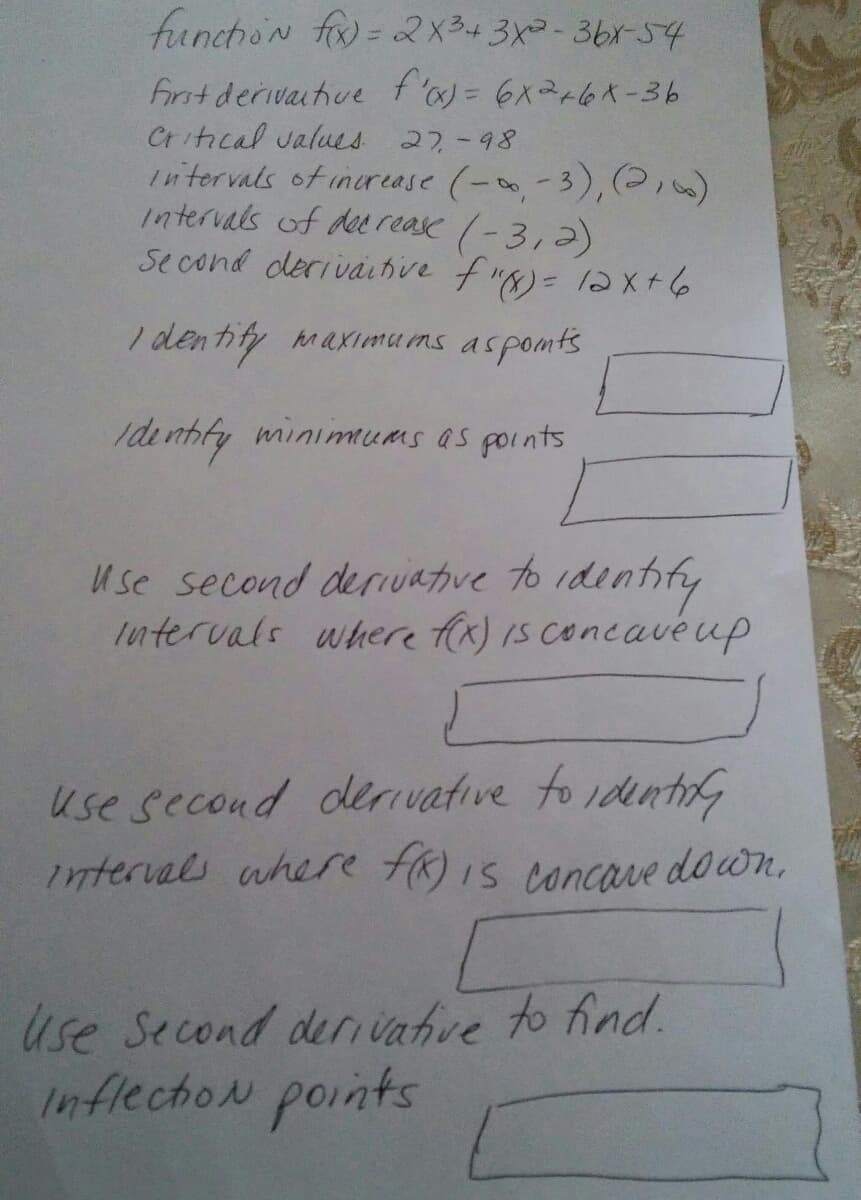 function f(x) = 2x³+3x²-36x-54
first derivaitive f'(x) = 6x²+6x-36
Critical values. 27, -98
intervals of increase (-∞, -3), (2, ∞)
intervals of decrease (-3, 2)
Second derivaitive f"(x) = 12x+6
Identify maximums as points
Identify minimmums as points
Use second derivative to identify
intervals where f(x) is concave up
use second derivative to identify
intervals where f(x) is concave down.
Use Second derivative to find.
inflection points